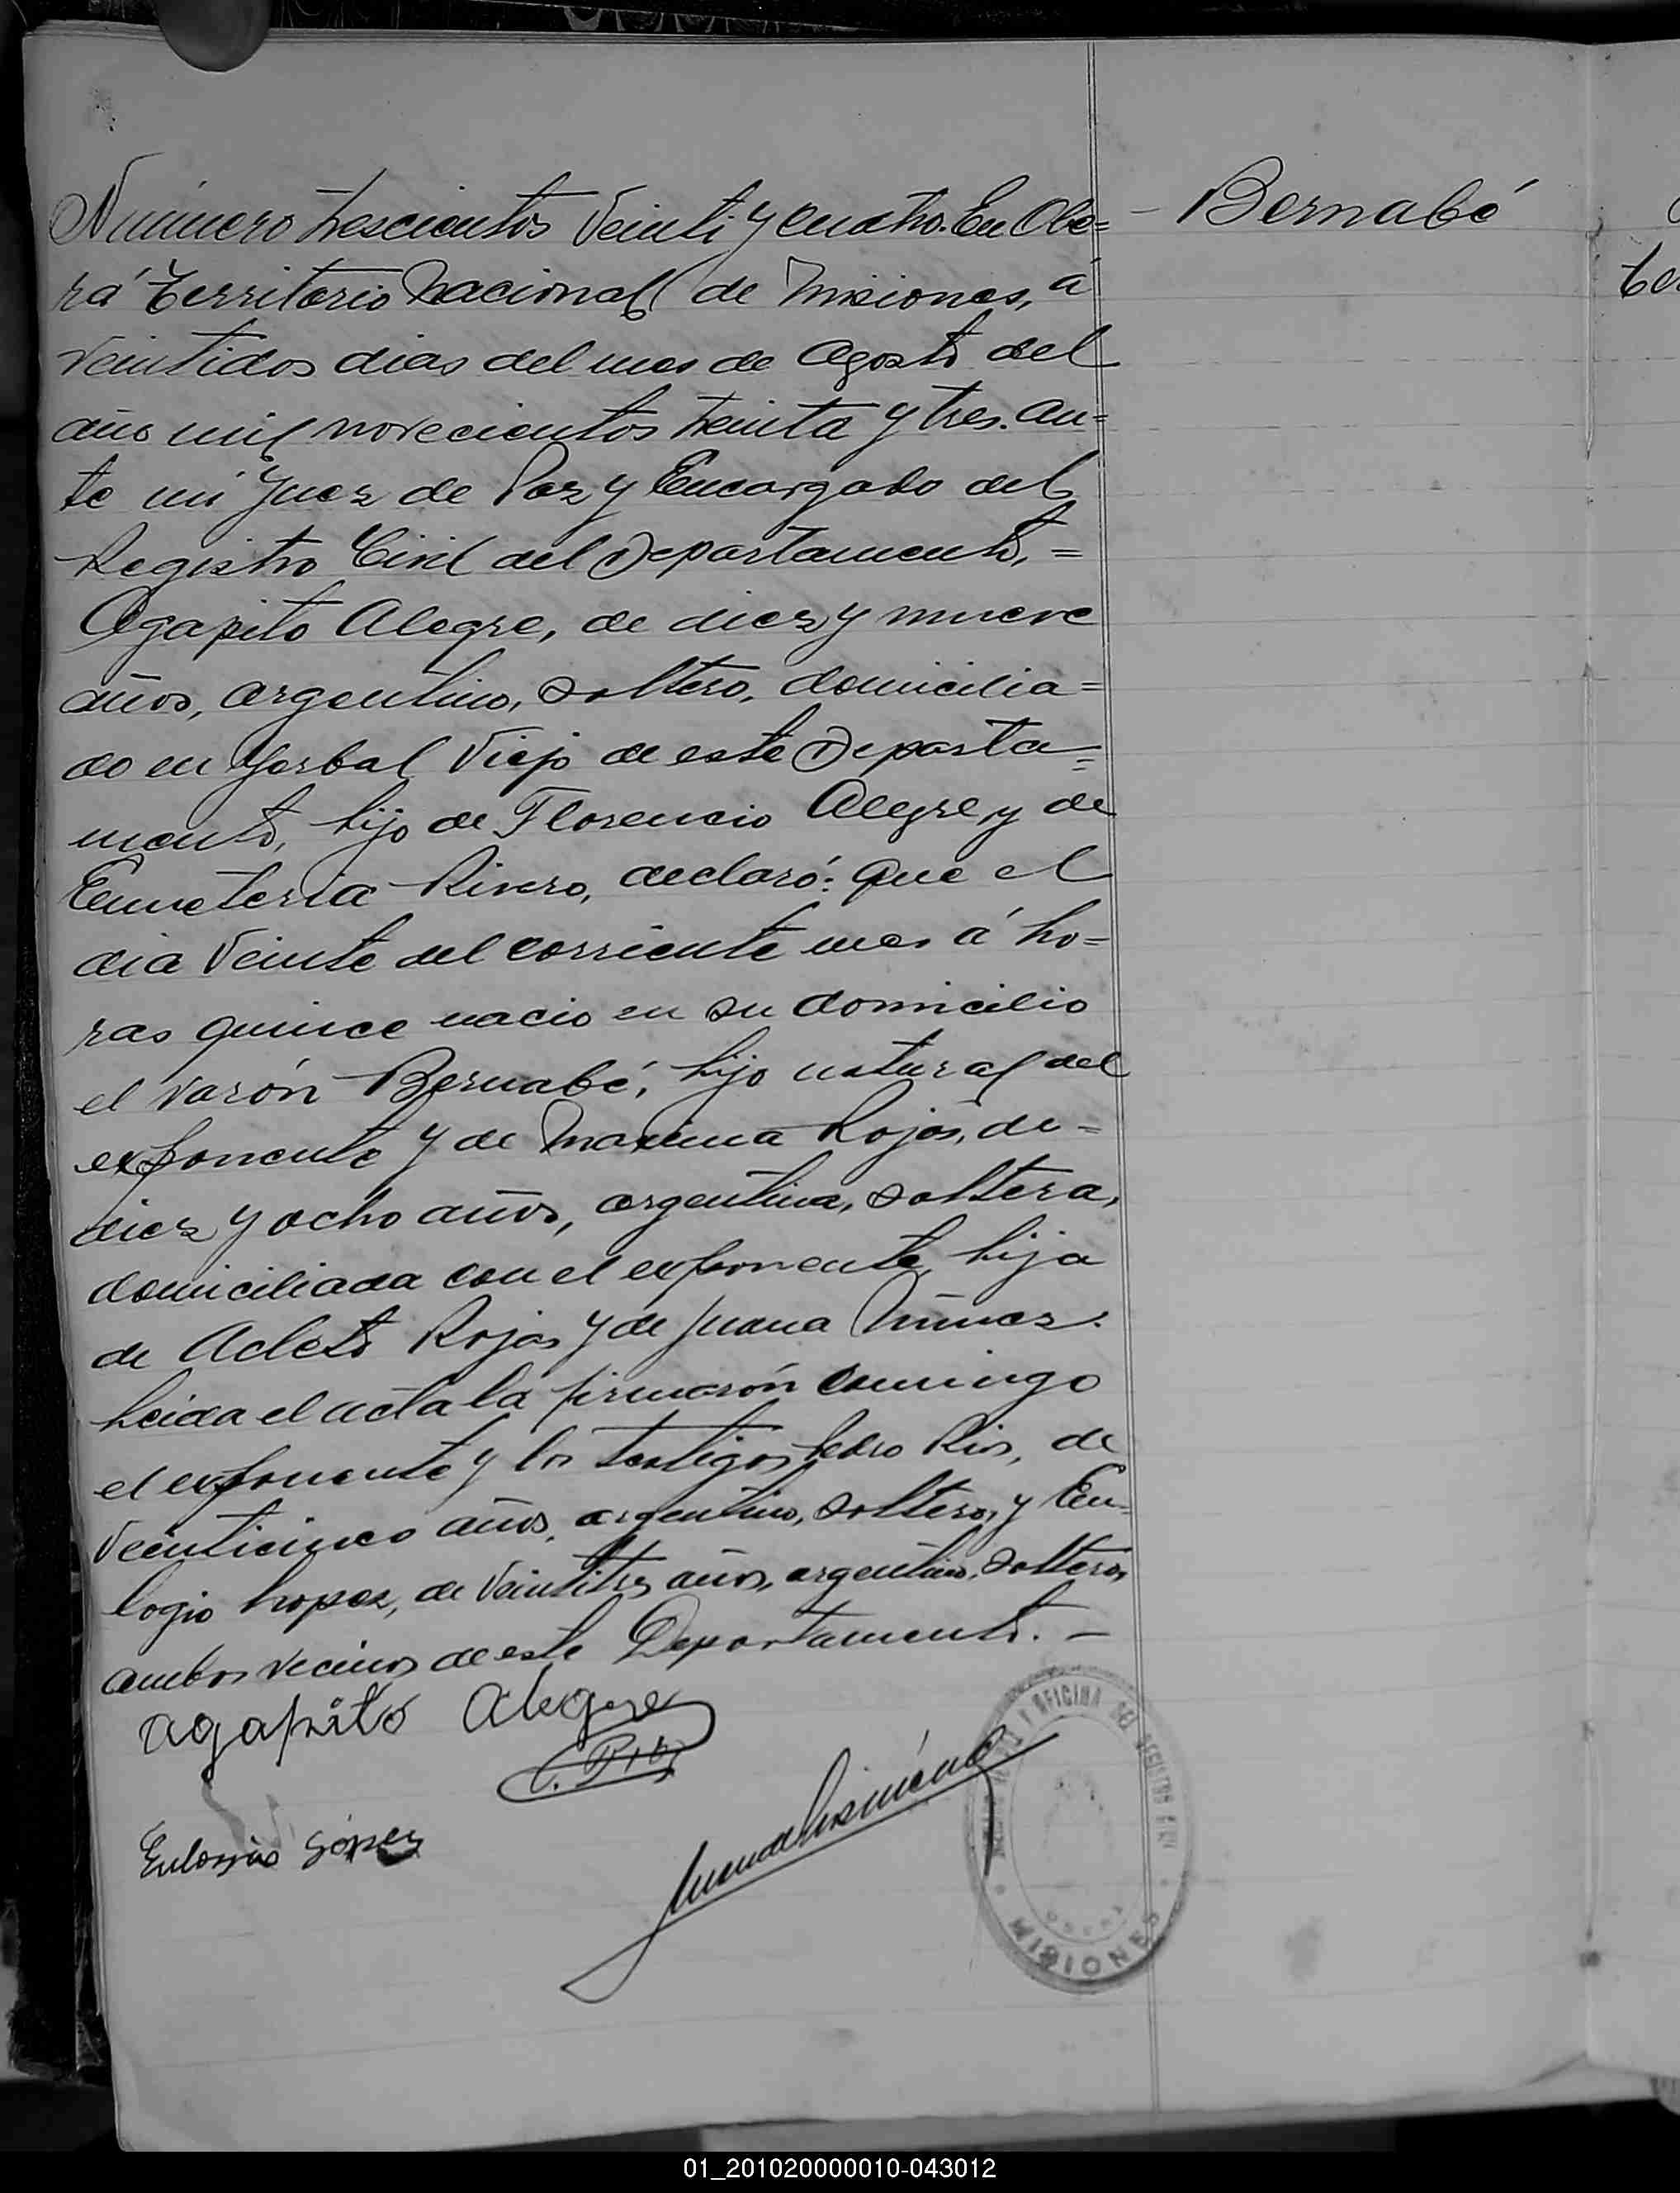 Número trescientos veinti y cuatro. En Obe=
rá Territorio Nacional de Misiones, á
veintidos dias del mes de Agosto del
año mil novecientos treinta y tres. An=
te mi Juez de Paz y Encargado del
Registro Civil del Departamento, =
Agapito Alegre, de diez y nueve
años, argentino, soltero, domicilia=
do en Yerbal Viejo de este Departa=
mento, hijo de Florencio Alegre y de
Emeteria Rivero, declaró: Que el
dia veinte del corriente mes á ho=
ras quince nacio en su domicilio
el varón Bernabé, hijo natural del
exponente y de Maxima Rojas, de=
diez y ocho años, argentina, soltera,
domiciliada con el exponente, hija
de Acleto Rojas y de Juana Núnez.
Leida el acta la firmarón conmigo
el exponente y los testigos Pedro Rios, de
veinticinco años, argentino, soltero, y Eu=
logio Lopez, de veintitres años, argentino, soltero,
ambos vecinos de este Departamento. -
Bernabé
agapito Alegre
P. Rios
Eulogio López
OFICINA DEL REGISTRO CIVIL
MISIONES
01_201020000010-043012